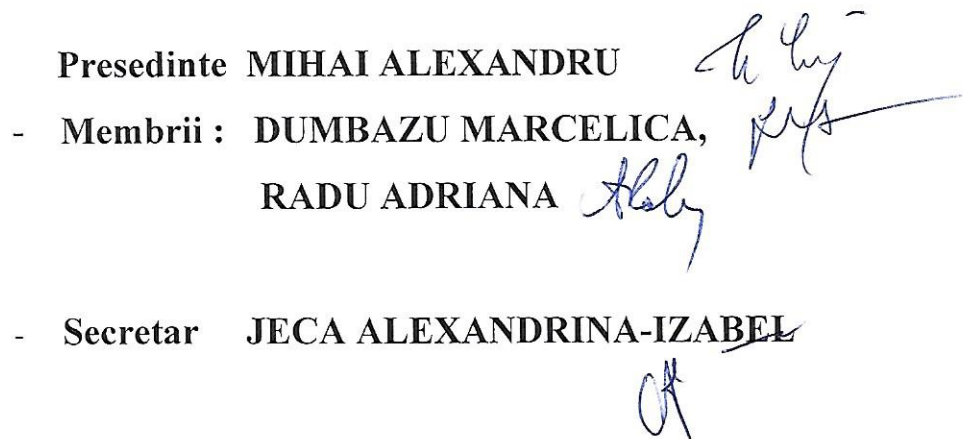 Presedinte MIHAI ALEXANDRU
- Membrii : DUMBAZU MARCELICA,
RADU ADRIANA
- Secretar JECA ALEXANDRINA-IZABEL